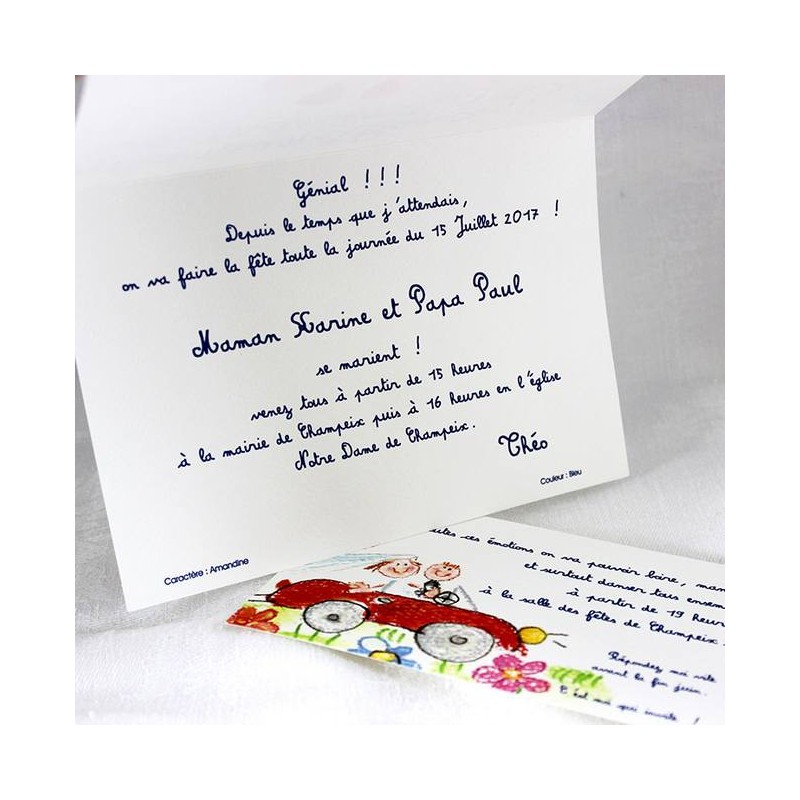 Génial !!!
Depuis le temps que j'attendais,
on va faire la fête toute la journée du 15 Juillet 2017 !
Maman Marine et Papa Paul
se marient !
venez tous à partir de 15 heures
à la mairie de Champeix puis à 16 heures en l'église
Notre Dame de Champeix.
Théo
Couleur : Bleu
Caractère : Amandine
ces émotions on va pouvoir boire,
et surtout danser tous
à partir de 19
à la salle des fêtes de Champeix.
Répondez moi vite
avant la fin juin.
C'est moi qui invite !